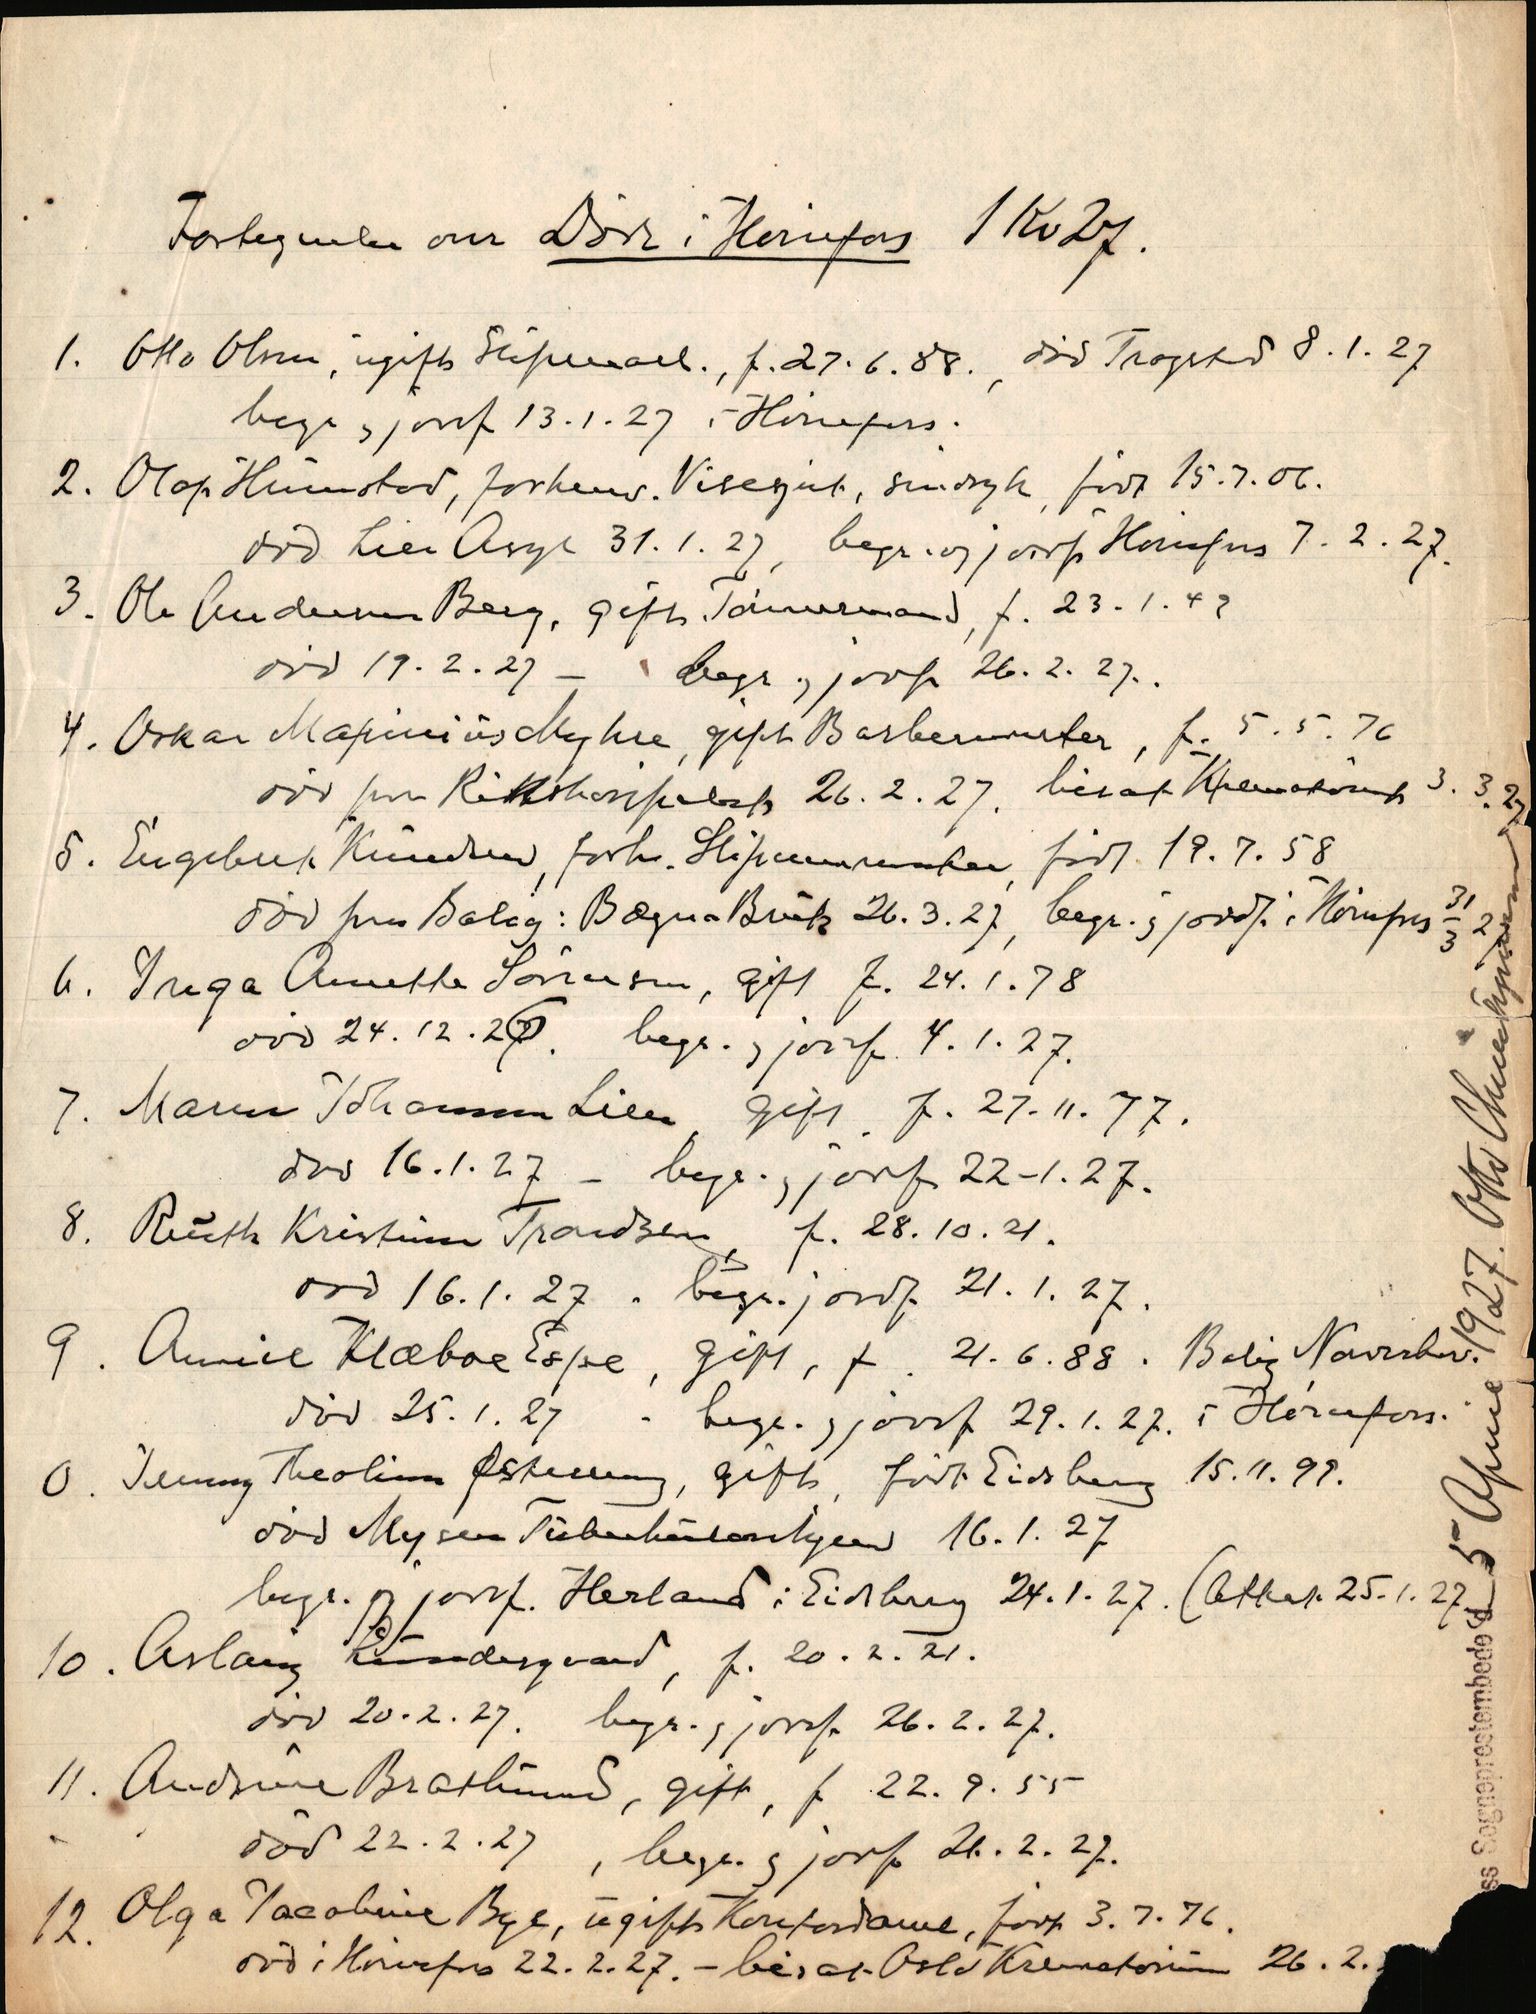 Fortegnelse over Døde i Hønefoss 1 Kv 27.
1. Otto Olsen, ugift Sliperiarb., f. 27.6.88., død Trøgstad 8.1.27
begr. og jordf 13.1.27 i Hønefoss.
2. Olaf Hunstad, forhenv. Visergut, sindsyk, født 15.7.06.
død Lier Asyl 31.1.27, begr. og jordf Hønefoss 7.2.27.
3. Ole Andersen Berg, gift Tømmermand, f. 23.1.49
død 19.2.27 – begr og jordf 26.2.27.
4. Oskar Myhre, gift Barbermester, f. 5.5.76
død paa Rikshospitalet 26.2.27. bisat Krematoriet 3.3.27
5. Engebret Knudsen, forh. født 19.7.58
død paa Bolig: Bægna Bruk 26.3.27, begr. og jordf. i Hønefoss 31/3 27
6. Inga Annette Sørensen, gift f. 24.1.78
død 24.12.26. begr. og jordf. 4.1.27.
7. Maren Johannne Lien, gift. f. 27.11.77.
død 16.1.27 – begr. og jordf 22-1.27.
8. Ruth Kristine Trondsen, f. 28.10.21.
død 16.1.27. begr. jordf. 21.1.27.
9. Klæboe Espe, gift, f. 21.6.88. Bolig
død 25.1.27. begr. og jordf 29.1.27. i Hønefoss.
0. Jenny Theoline Østereng, gift, født Eidsberg 15.11.99.
død Mysen Tuberkulosehjem 16.1.27
begr. og jordf. Herland i Eidsberg 24.1.27. (Attest 25.1.27
10. Aslaug f. 20.2.21.
død 20.2.27. begr. og jordf 26.2.27.
11. Andrine Bratlund, gift, f 22.9.55
død 22.2.27, begr. og jordf 26.2.27.
12. Olga Jacobine Bye, ugift Kontordame, født 3.7.76.
død i Hønefoss 22.2.27. – bisat Oslo Krematorium 26.2.
ss Sogneprestembede d 5 April 1927. Otto